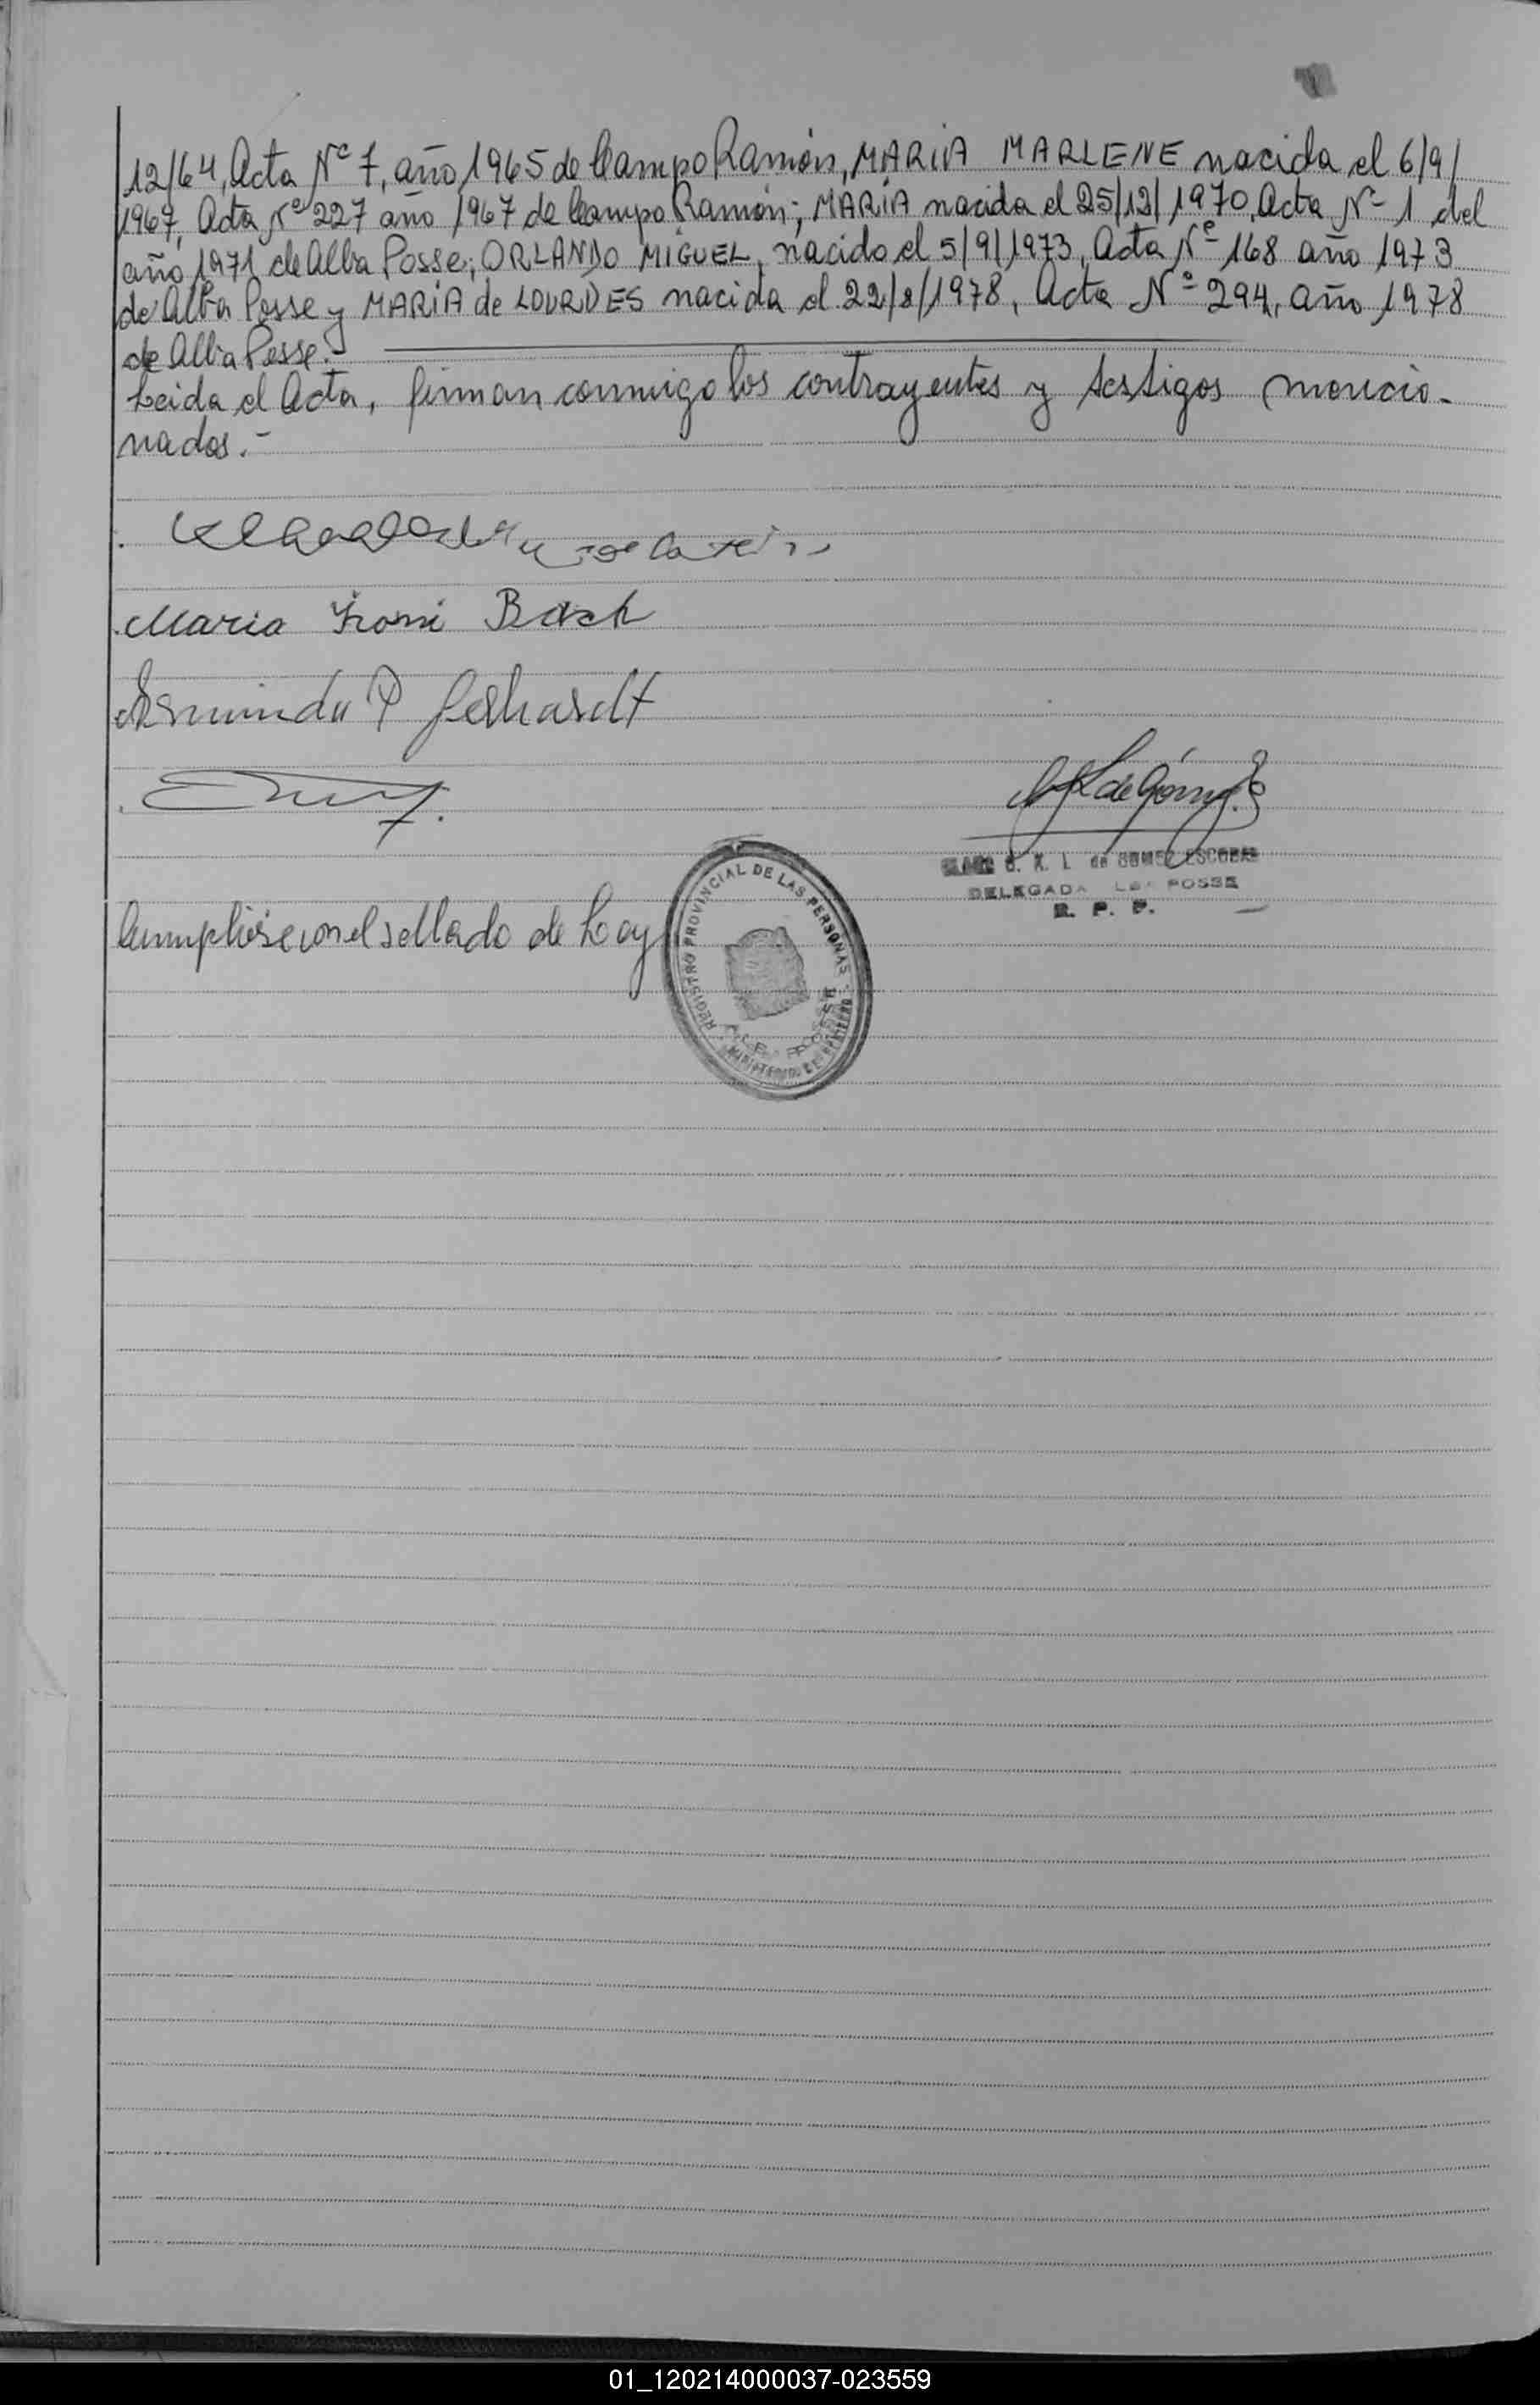 12/64, Acta Nº 7, año 1965 de Campo Ramón, MARIA MARLENE nacida el 6/9/
1967, Acta Nº 227 año 1967 de Campo Ramón; MARIA nacida el 25/12/1970, Acta Nº 1 del
año 1971 de Alba Posse; ORLANDO MIGUEL, nacido el 5/9/1973, Acta Nº 168 año 1973
de Alba Posse y MARIA de LOURDES nacida el 22/8/1978, Acta Nº 294, año 1978
de Alba Posse.
Leida el Acta, firman conmigo los contrayentes y testigos mencio-
nados.-
Maria Bach
Gerhardt
de Gómez
de GOMEZ ESCOBAR
DELEGADA POSSE
R. P. P.
Cumplióse con el sellado de Ley
REGISTRO PROVINCIAL DE LAS PERSONAS
MINISTERIO DE GOBIERNO
01_120214000037-023559